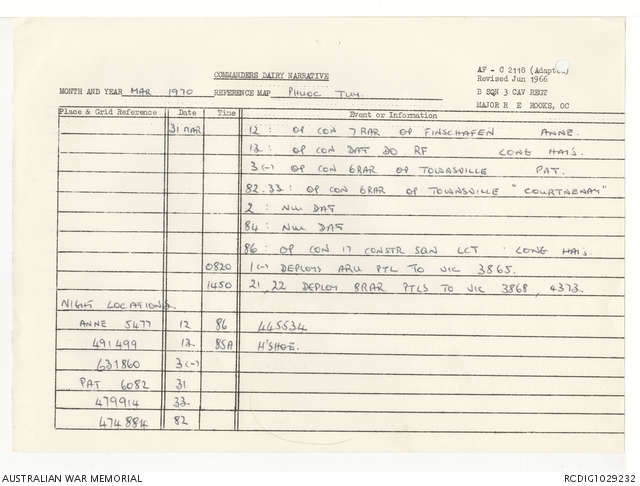 COMMANDERS DAIRY NARRATIVE
AF - C 2118 (Adapted)
Revised Jun 1966
MONTH AND YEAR MAR 1970 REFERENCE MAP PHUOC TUY.
B SQN 3 CAV REGT
MAJOR R E ROOKS, OC
Place & Grid Reference Date Time Event or Information
31 MAR 12 : OP CON 7 RAR OP FINSCHAFEN ANNE.
13 : OP CON DAT DO RF LONG HAIS.
3 (-) OP CON 6RAR OP TOWNSVILLE PAT.
82.33 : OP CON 6RAR OP TOWNSVILLE "COURTNENAY"
2 : NW DAT
84 : NW DAT
86 : OP CON 17 CONSTR SQN LCT : LONG HAIS
0820 1 (-) DEPLOYS ARU PTL TO VIC 3865.
1450 21, 22 DEPLOY 8RAR PTLS TO VIC 3868, 4373.
NIGHT LOCATIONS
ANNE 5477 12 86 445534
491499 13. 85A H'SHOE.
631860 3 (-)
PAT 6082 31
479914 33.
474884 82
AUSTRALIAN WAR MEMORIAL RCDIG1029232